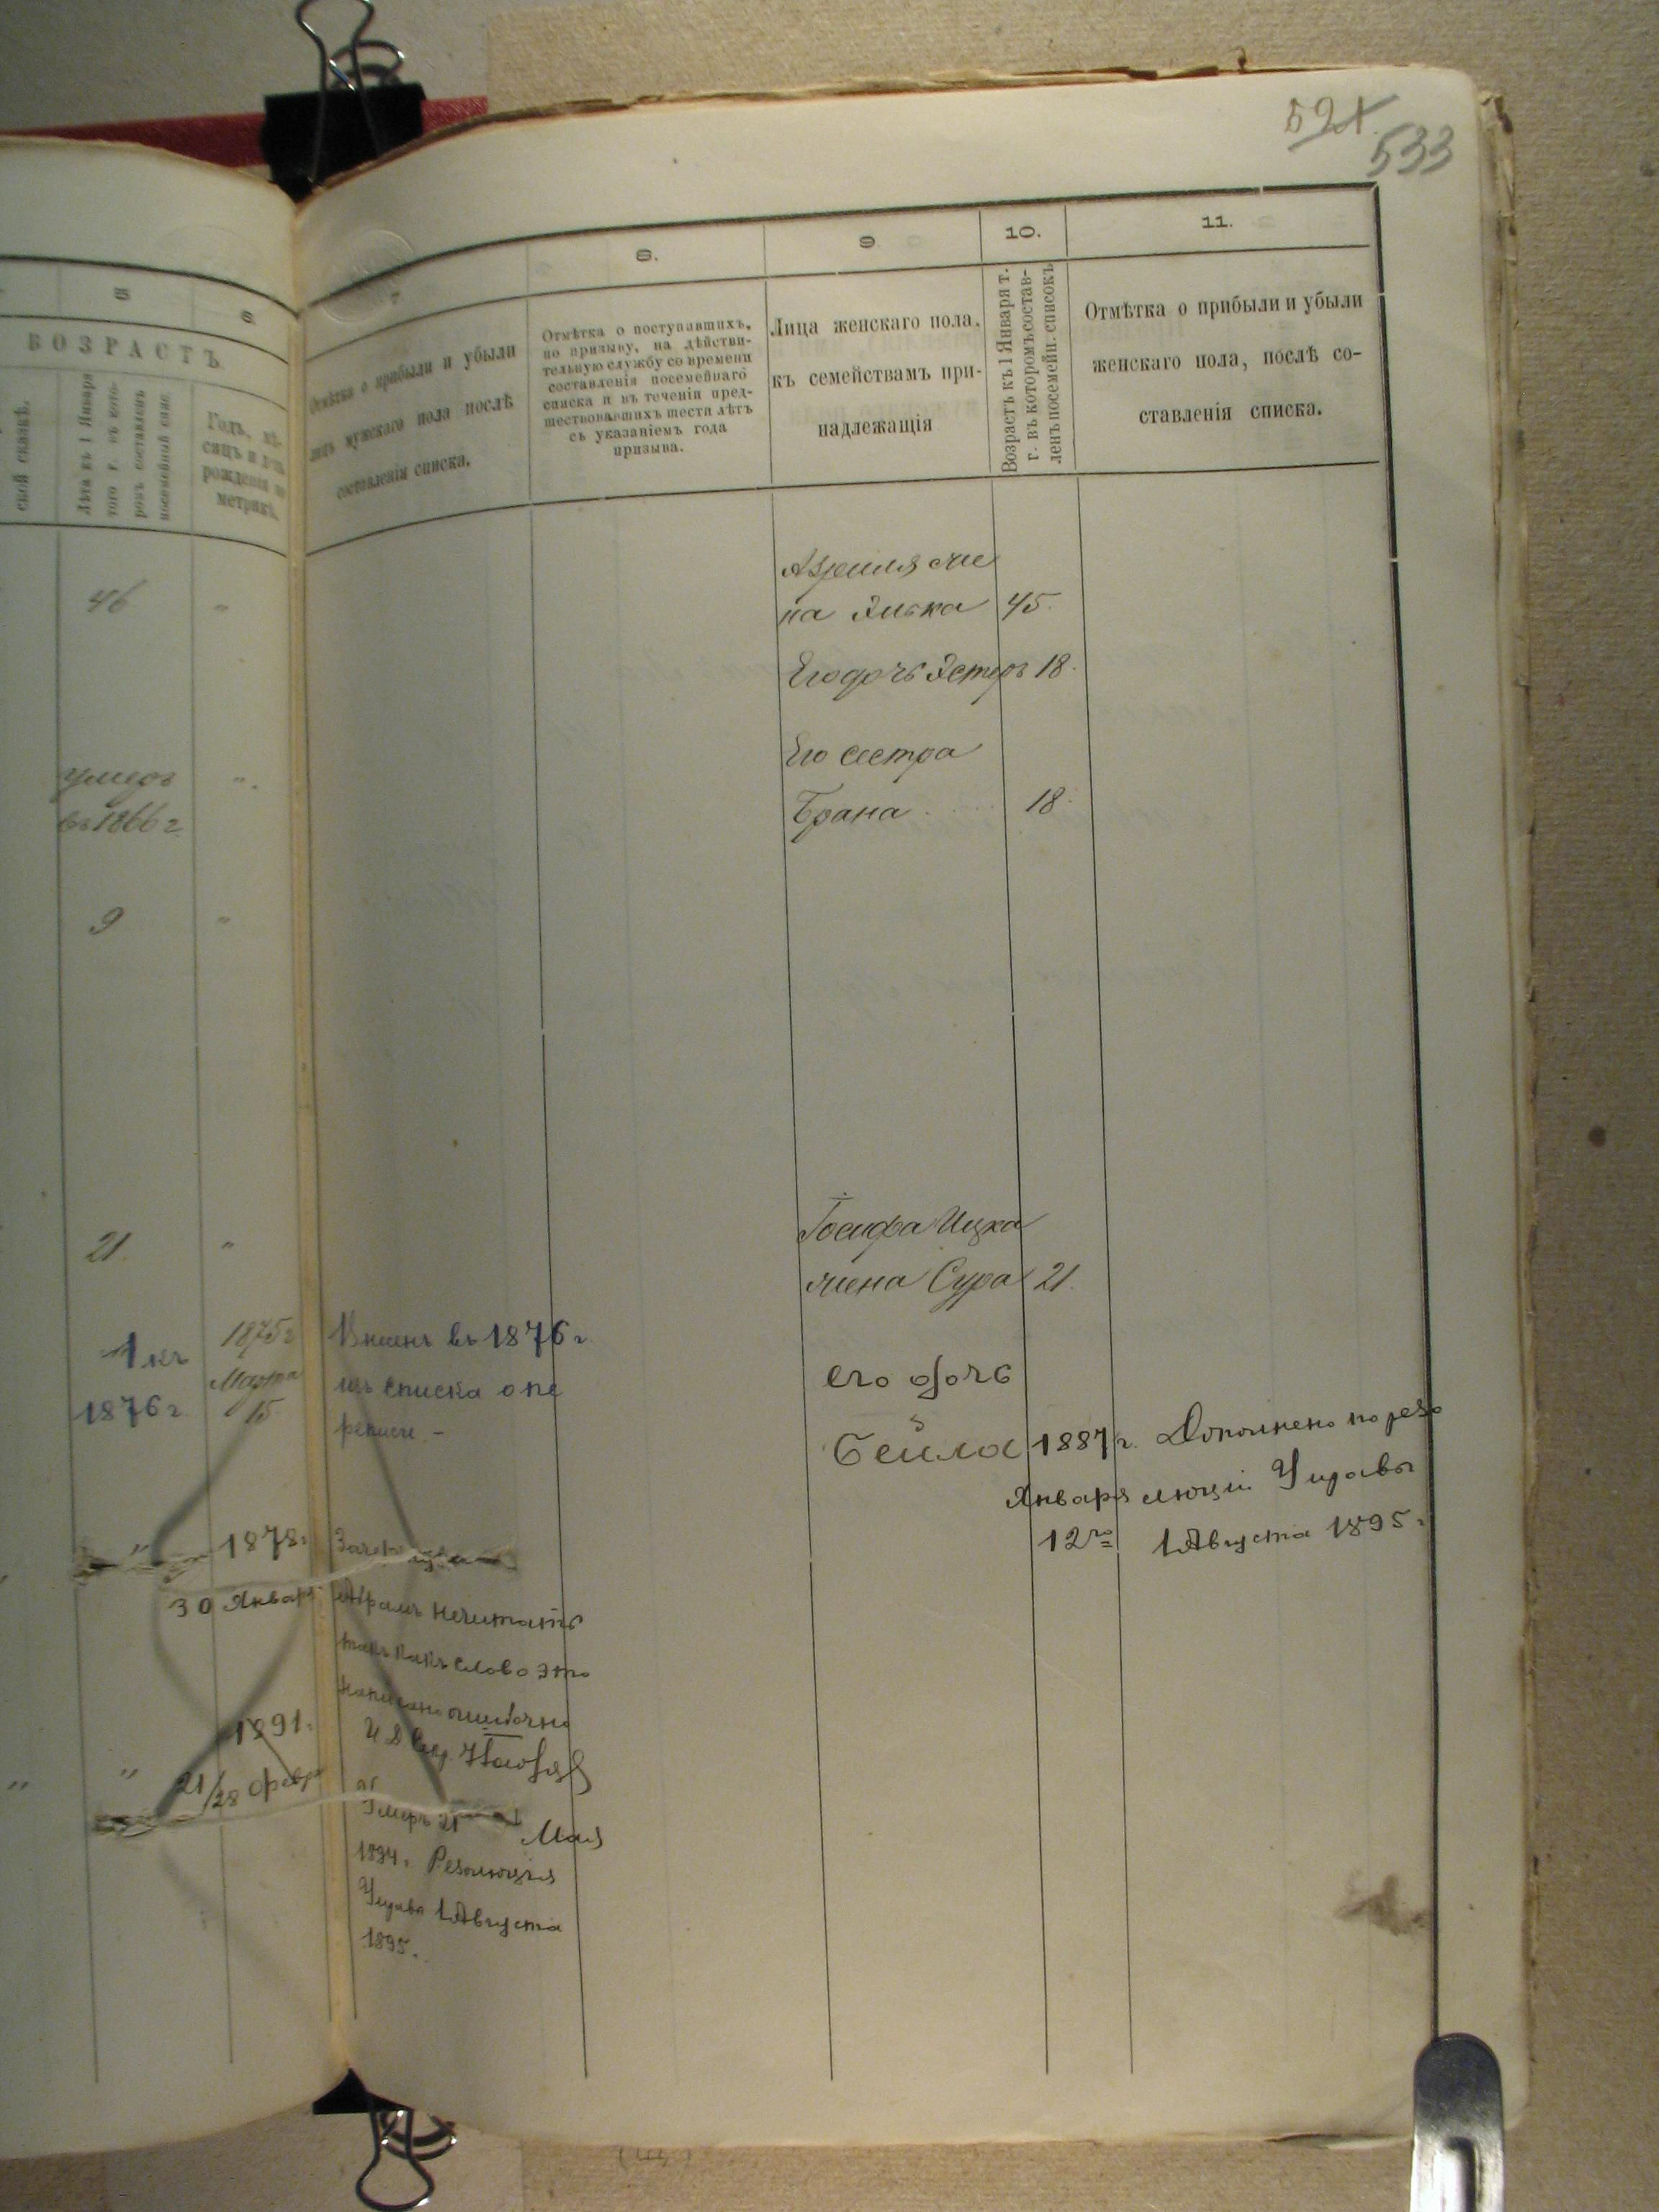 52
533
5
6
7
8.
9
10.
11.
ВОЗРАСТЪ
ской сказкѣ.
Лѣта къ 1 Января
того г. въ кото-
ромъ составленъ
посемейный спис.
Годъ, мѣ-
сяцъ и день
рожденія по
метрикѣ.
Отмѣтка о прибыли и убыли
лицъ мужскаго пола послѣ
составленія списка.
Отмѣтка о поступавшихъ,
по призыву, на дѣйстви-
тельную службу со времени
составленія посемейнаго
списка и въ теченіи пред-
шествовавшихъ шести лѣтъ
съ указаніемъ года
призыва.
Лица женскаго пола,
къ семействамъ при-
надлежащія
Возрастъ къ 1 Января т.
г. въ которомъ состав-
ленъ посемейн. списокъ
Отмѣтка о прибыли и убыли
женскаго пола, послѣ со-
ставленія списка.
46 "
на Элька 45.
Его дочь Эстеръ 18.
Его сестра
Брана 18.
умеръ ".
въ 1866 г.
9 "
21. "
Іосифа Ицка
жена Сура 21.
1 къ
1876 г
1875 г
Марта
15
въ 1876 г
изъ списка о пе
реписи. -
его дочь
Бейла 1887 г. Дополнено по резо
Января люціи Управы
12го 1 Августа 1895 г
" 1878 г
30 Января
Абрамъ нечитать
такъ какъ слово это
написано ошибочно
И Д
" " 1891.
21/28 февр
Умеръ 21 Мая
1894 г. Резолюція
Управы 1 Августа
1895.